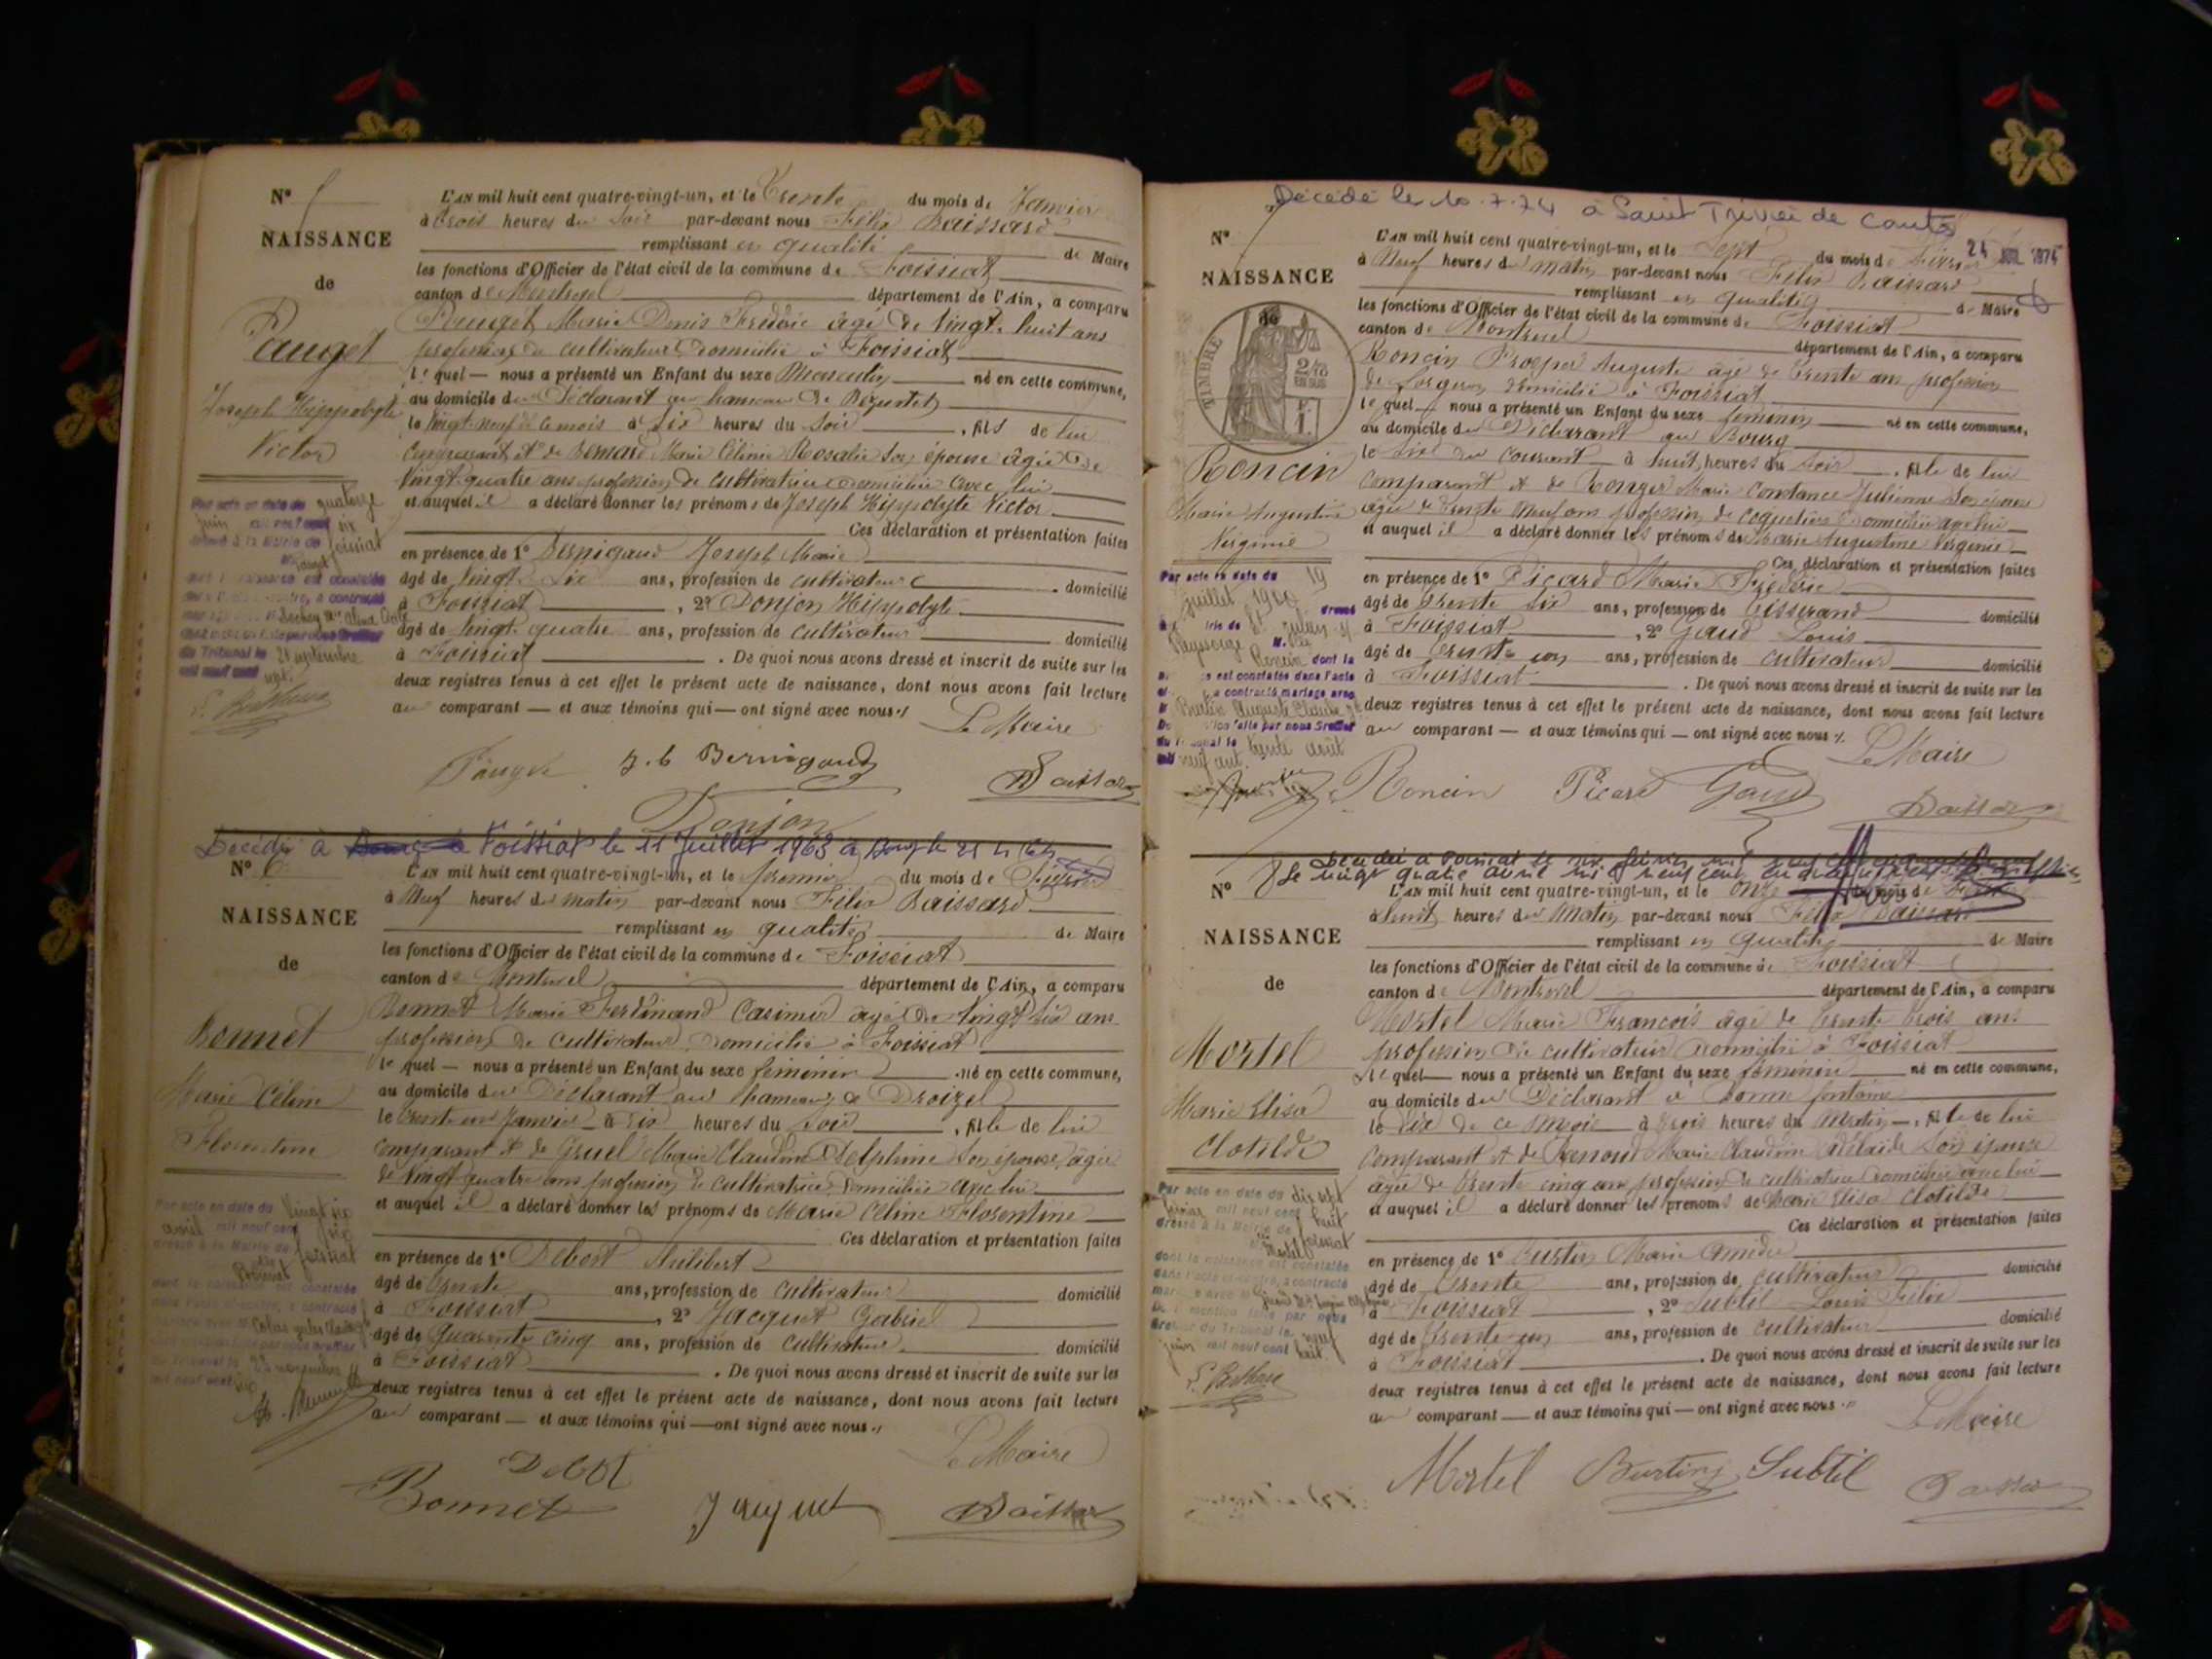 N° 5
NAISSANCE
de
Pauget
Joseph Hippolyte
Victor
Par acte en date du quatorze
juin mil neuf cent six
dressé à la Mairie de foissiat
Pauget
dont la naissance est constatée
dans l'acte ci-contre, a contracté
du Tribunal le 21 septembre
mil neuf cent sept.
L'AN mil huit cent quatre-vingt-un, et le Trente du mois de Janvier
à trois heures du soir par-devant nous Félix Baissard
remplissant en qualité de Maire
les fonctions d'Officier de l'état civil de la commune de Foissiat
canton de Montrevel département de l'Ain, a comparu
Pauget Marie Denis Frédéric âgé de vingt-huit ans
profession de cultivateur domicilié à Foissiat
lequel — nous a présenté un Enfant du sexe Masculin né en cette commune,
au domicile du Déclarant au hameau de
le vingt-neuf de ce mois à six heures du soir, fils de lui
comparant et de Bernard Marie Céline Rosalie son épouse âgée de
vingt-quatre ans profession de cultivatrice domiciliée avec lui
et auquel il a déclaré donner les prénoms de Joseph Hippolyte Victor
Ces déclaration et présentation faites
en présence de 1° Bernigaud Joseph Marie
âgé de vingt-six ans, profession de cultivateur domicilié
à Foissiat, 2° Donjon Hippolyte
âgé de vingt-quatre ans, profession de cultivateur domicilié
à Foissiat. De quoi nous avons dressé et inscrit de suite sur les
deux registres tenus à cet effet le présent acte de naissance, dont nous avons fait lecture
au comparant — et aux témoins qui — ont signé avec nous
Le Maire
Pauget J. b Bernigaud Baissard
Donjon
Décédée à Foissiat le 11 Juillet 1963
N° 6
NAISSANCE
de
Bonnet
Marie Céline
Florentine
Par acte en date du vingt six
avril mil neuf cent six
dressé à la Mairie de foissiat
Bonnet
dont la naissance est constatée
dans l'acte ci-contre, a contracté
du Tribunal le 22 novembre
mil neuf cent six
L'AN mil huit cent quatre-vingt-un, et le premier du mois de Février
à Neuf heures du matin par-devant nous Félix Baissard
remplissant en qualité de Maire
les fonctions d'Officier de l'état civil de la commune de Foissiat
canton de Montrevel département de l'Ain, a comparu
Bonnet Marie Ferdinand Casimir âgé de vingt-six ans
profession de cultivateur domicilié à Foissiat
lequel — nous a présenté un Enfant du sexe féminin né en cette commune,
au domicile du Déclarant au hameau de Droizel
le trente un Janvier à dix heures du soir, fille de lui
comparant et de Gruel Marie Claudine Delphine son épouse, âgée
de vingt-quatre ans profession de cultivatrice domiciliée avec lui
et auquel il a déclaré donner les prénoms de Marie Céline Florentine
Ces déclaration et présentation faites
en présence de 1° Debost Philibert
âgé de trente ans, profession de cultivateur domicilié
à Foissiat, 2° Jacquet Gabriel
âgé de quarante cinq ans, profession de cultivateur domicilié
à Foissiat. De quoi nous avons dressé et inscrit de suite sur les
deux registres tenus à cet effet le présent acte de naissance, dont nous avons fait lecture
au comparant — et aux témoins qui — ont signé avec nous
Le Maire
Debost
Bonnet Jacquet Baissard
Décédé le 10.7.74 à Saint Trivier de Courtes
N° 7
NAISSANCE
TIMBRE
Roncin
Marie Augustine
Virginie
Par acte en date du 19
juillet 1920 dressé
Roncin dont la
est constatée dans l'acte
a contracté mariage avec
faite par nous Greffier
du Tribunal le trente août
L'AN mil huit cent quatre-vingt-un, et le Sept du mois de Février
24 JUIL 1974
à Neuf heures du matin par-devant nous Félix Baissard
remplissant en qualité de Maire
les fonctions d'Officier de l'état civil de la commune de Foissiat
canton de Montrevel département de l'Ain, a comparu
Roncin Prosper Auguste âgé de trente ans profession
de forgeron domicilié à Foissiat
lequel nous a présenté un Enfant du sexe féminin né en cette commune,
au domicile du Déclarant au Bourg
le six du courant à huit heures du soir, fille de lui
comparant et de Ronger Marie Constance Julienne son épouse
âgée de trente neuf ans profession de coquetière domiciliée avec lui
et auquel il a déclaré donner les prénoms de Marie Augustine Virginie
Ces déclaration et présentation faites
en présence de 1° Picard Marie Frédéric
âgé de trente six ans, profession de tisserand domicilié
à Foissiat, 2° Gaud Louis
âgé de trente un ans, profession de cultivateur domicilié
à Foissiat. De quoi nous avons dressé et inscrit de suite sur les
deux registres tenus à cet effet le présent acte de naissance, dont nous avons fait lecture
au comparant — et aux témoins qui — ont signé avec nous
Le Maire
Roncin Picard Gaud Baissard
N° 8
NAISSANCE
de
Mortel
Marie Elisa
Clotilde
Par acte en date du dix sept
février mil neuf cent huit
dressé à la Mairie de foissiat
Mortel
dont la naissance est constatée
dans l'acte ci-contre, a contracté
mention faite par nous
Greffier du Tribunal le neuf
juin mil neuf cent huit
L'AN mil huit cent quatre-vingt-un, et le onze du mois de Février
à huit heures du matin par-devant nous Félix Baissard
remplissant en qualité de Maire
les fonctions d'Officier de l'état civil de la commune de Foissiat
canton de Montrevel département de l'Ain, a comparu
Mortel Marie François âgé de trente trois ans
profession de cultivateur domicilié à Foissiat
lequel — nous a présenté un Enfant du sexe féminin né en cette commune,
au domicile du Déclarant à Bonne fontaine
le dix de ce mois à trois heures du matin, fille de lui
comparant et de Renoud Marie Claudine Adélaïde son épouse
âgée de trente cinq ans profession de cultivatrice domiciliée avec lui
et auquel il a déclaré donner les prénoms de Marie Elisa Clotilde
Ces déclaration et présentation faites
en présence de 1° Burtin Marie Amédée
âgé de trente ans, profession de cultivateur domicilié
à Foissiat, 2° Subtil Louis Félix
âgé de trente un ans, profession de cultivateur domicilié
à Foissiat. De quoi nous avons dressé et inscrit de suite sur les
deux registres tenus à cet effet le présent acte de naissance, dont nous avons fait lecture
au comparant — et aux témoins qui — ont signé avec nous
Le Maire
Mortel Burtin Subtil Baissard